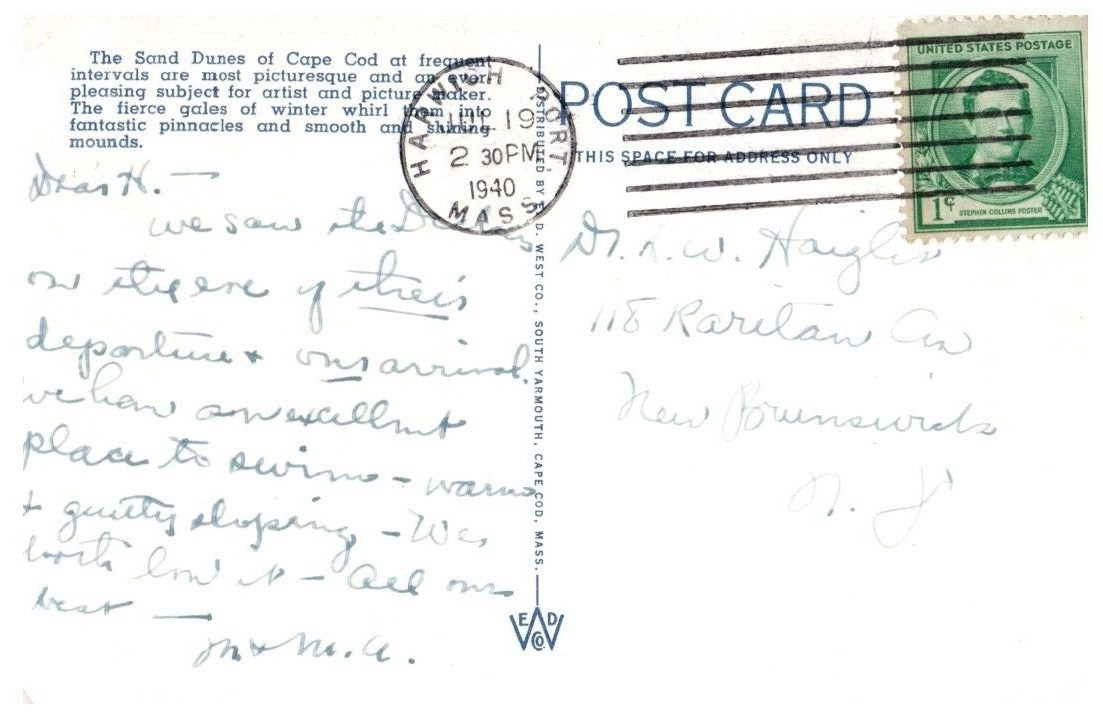 The Sand Dunes of Cape Cod at frequent
intervals are most picturesque and an ever
pleasing subject for artist and picture maker.
The fierce gales of winter whirl them into
fantastic pinnacles and smooth and shining
mounds.
Dear H. —
we saw the
on the eve of their
departure & our arrival.
we have an excellent
place to swim – warm
& gently sloping – We
both love it – All our
best —
M & M. A.
DISTRIBUTED BY E. D. WEST CO., SOUTH YARMOUTH, CAPE COD, MASS.
E W D
CO
HARWICH PORT,
JUL 19
2 30 PM
1940
MASS.
POST CARD
THIS SPACE FOR ADDRESS ONLY
UNITED STATES POSTAGE
1¢
STEPHEN COLLINS FOSTER
Dr. L. W. Haigler
118 Raritan Av
New Brunswick
N. J.